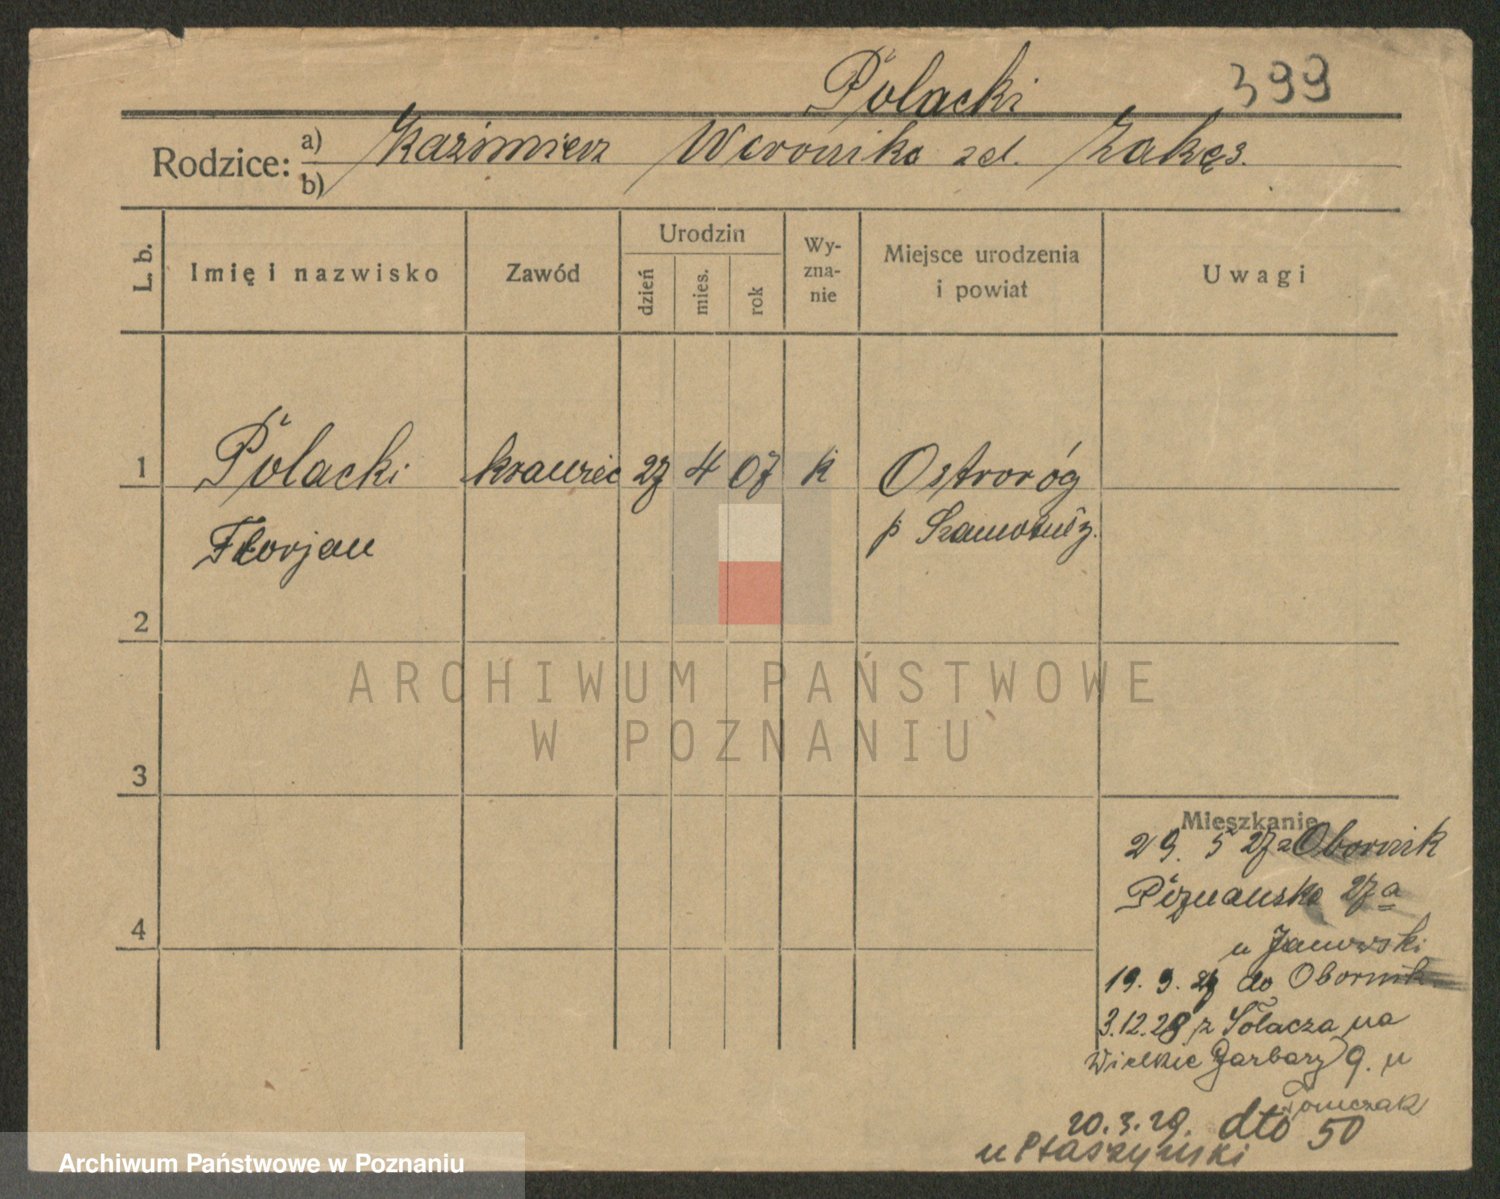 Polacki 399
Rodzice: a) Kazimierz Weronika zd.
b)
L. b. Imię i nazwisko Zawód Urodzin dzień mies. rok Wyznanie Miejsce urodzenia i powiat Uwagi
1 Polacki krawiec 27 4 07 k Ostroróg
Florjan p Szamotuły
2
3
4
Mieszkanie
29. 5 27 z Obornik
Poznańska 27a
u Janowski
19. 9. 27 do Obornik
3.12.28 z Sołacza na
Wielkie Garbary 9. u
Tomczak
20.3.29. dto 50
u Ptaszyński
ARCHIWUM PAŃSTWOWE
W POZNANIU
Archiwum Państwowe w Poznaniu